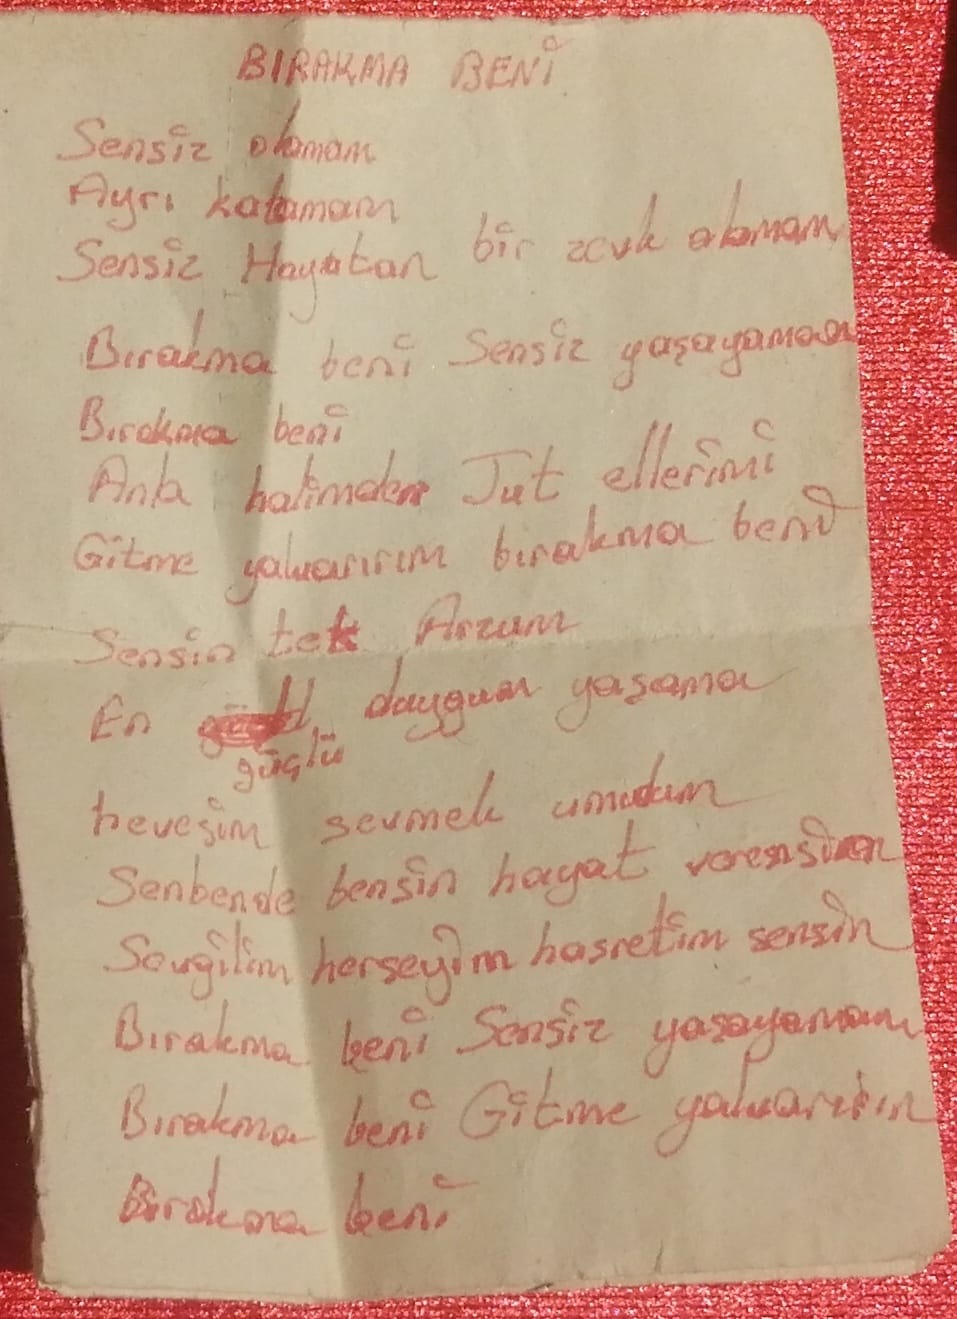 BIRAKMA BENİ
Sensiz olamam
Ayrı kalamam
Sensiz Hayatan bir zevk alamam
Bırakma beni Sensiz yaşayamam
Bırakma beni
Anla halimden Tut ellerimi
Gitme yalvarırım bırakma beni
Sensin tek Arzum
En duygum yaşama
güçlü
hevesim sevmek umudum
Senbende bensin hayat verensin
Sevgilim herseyim hasretim sensin
Bırakma beni Sensiz yaşayamam
Bırakma beni Gitme yalvarırım
Bırakma beni